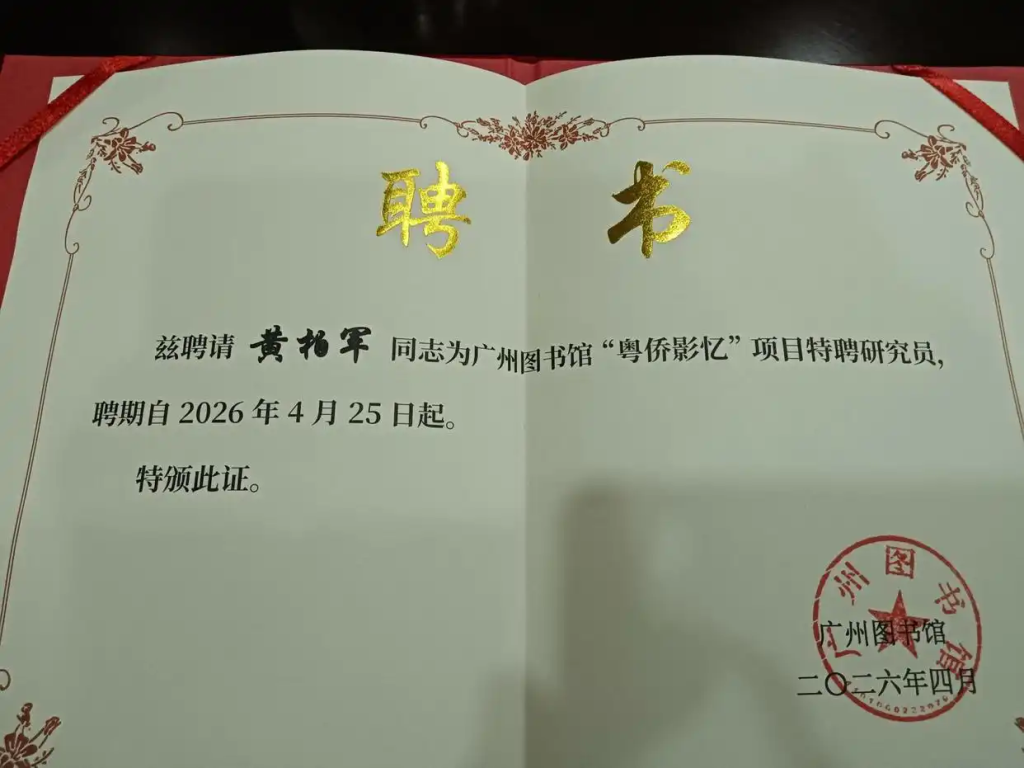 聘 书
兹聘请 黄柏军 同志为广州图书馆“粤侨影忆”项目特聘研究员，
聘期自 2026 年 4 月 25 日起。
特颁此证。
广州图书馆
广州图书馆
二〇二六年四月